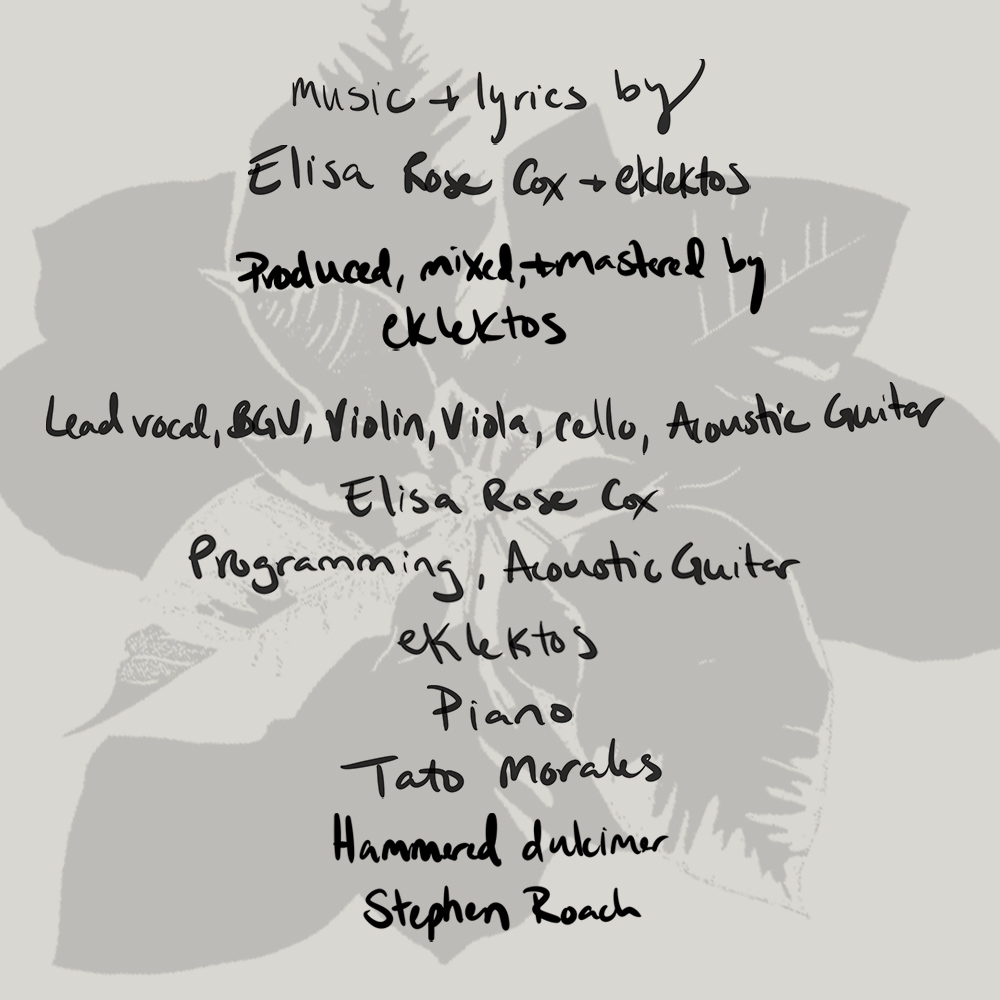 music + lyrics by
Elisa Rose Cox + eklektos
Produced, mixed, + mastered by
eklektos
Lead vocal, BGV, Violin, Viola, cello, Acoustic Guitar
Elisa Rose Cox
Programming, Acoustic Guitar
eklektos
Piano
Tato Morales
Hammered dulcimer
Stephen Roach